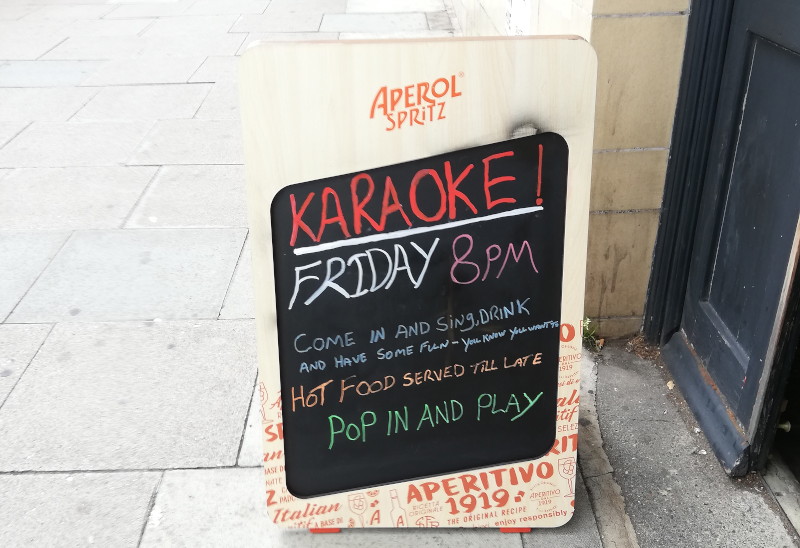 APEROL
SPRITZ
KARAOKE!
FRIDAY 8PM
COME IN AND SING, DRINK
AND HAVE SOME FUN - YOU KNOW YOU WANT TO
HOT FOOD SERVED TILL LATE
POP IN AND PLAY
APERITIVO
1919
THE ORIGINAL RECIPE
enjoy responsibly
Italian
RICETTA
ORIGINALE
BASE DI
APERITIVO
1919